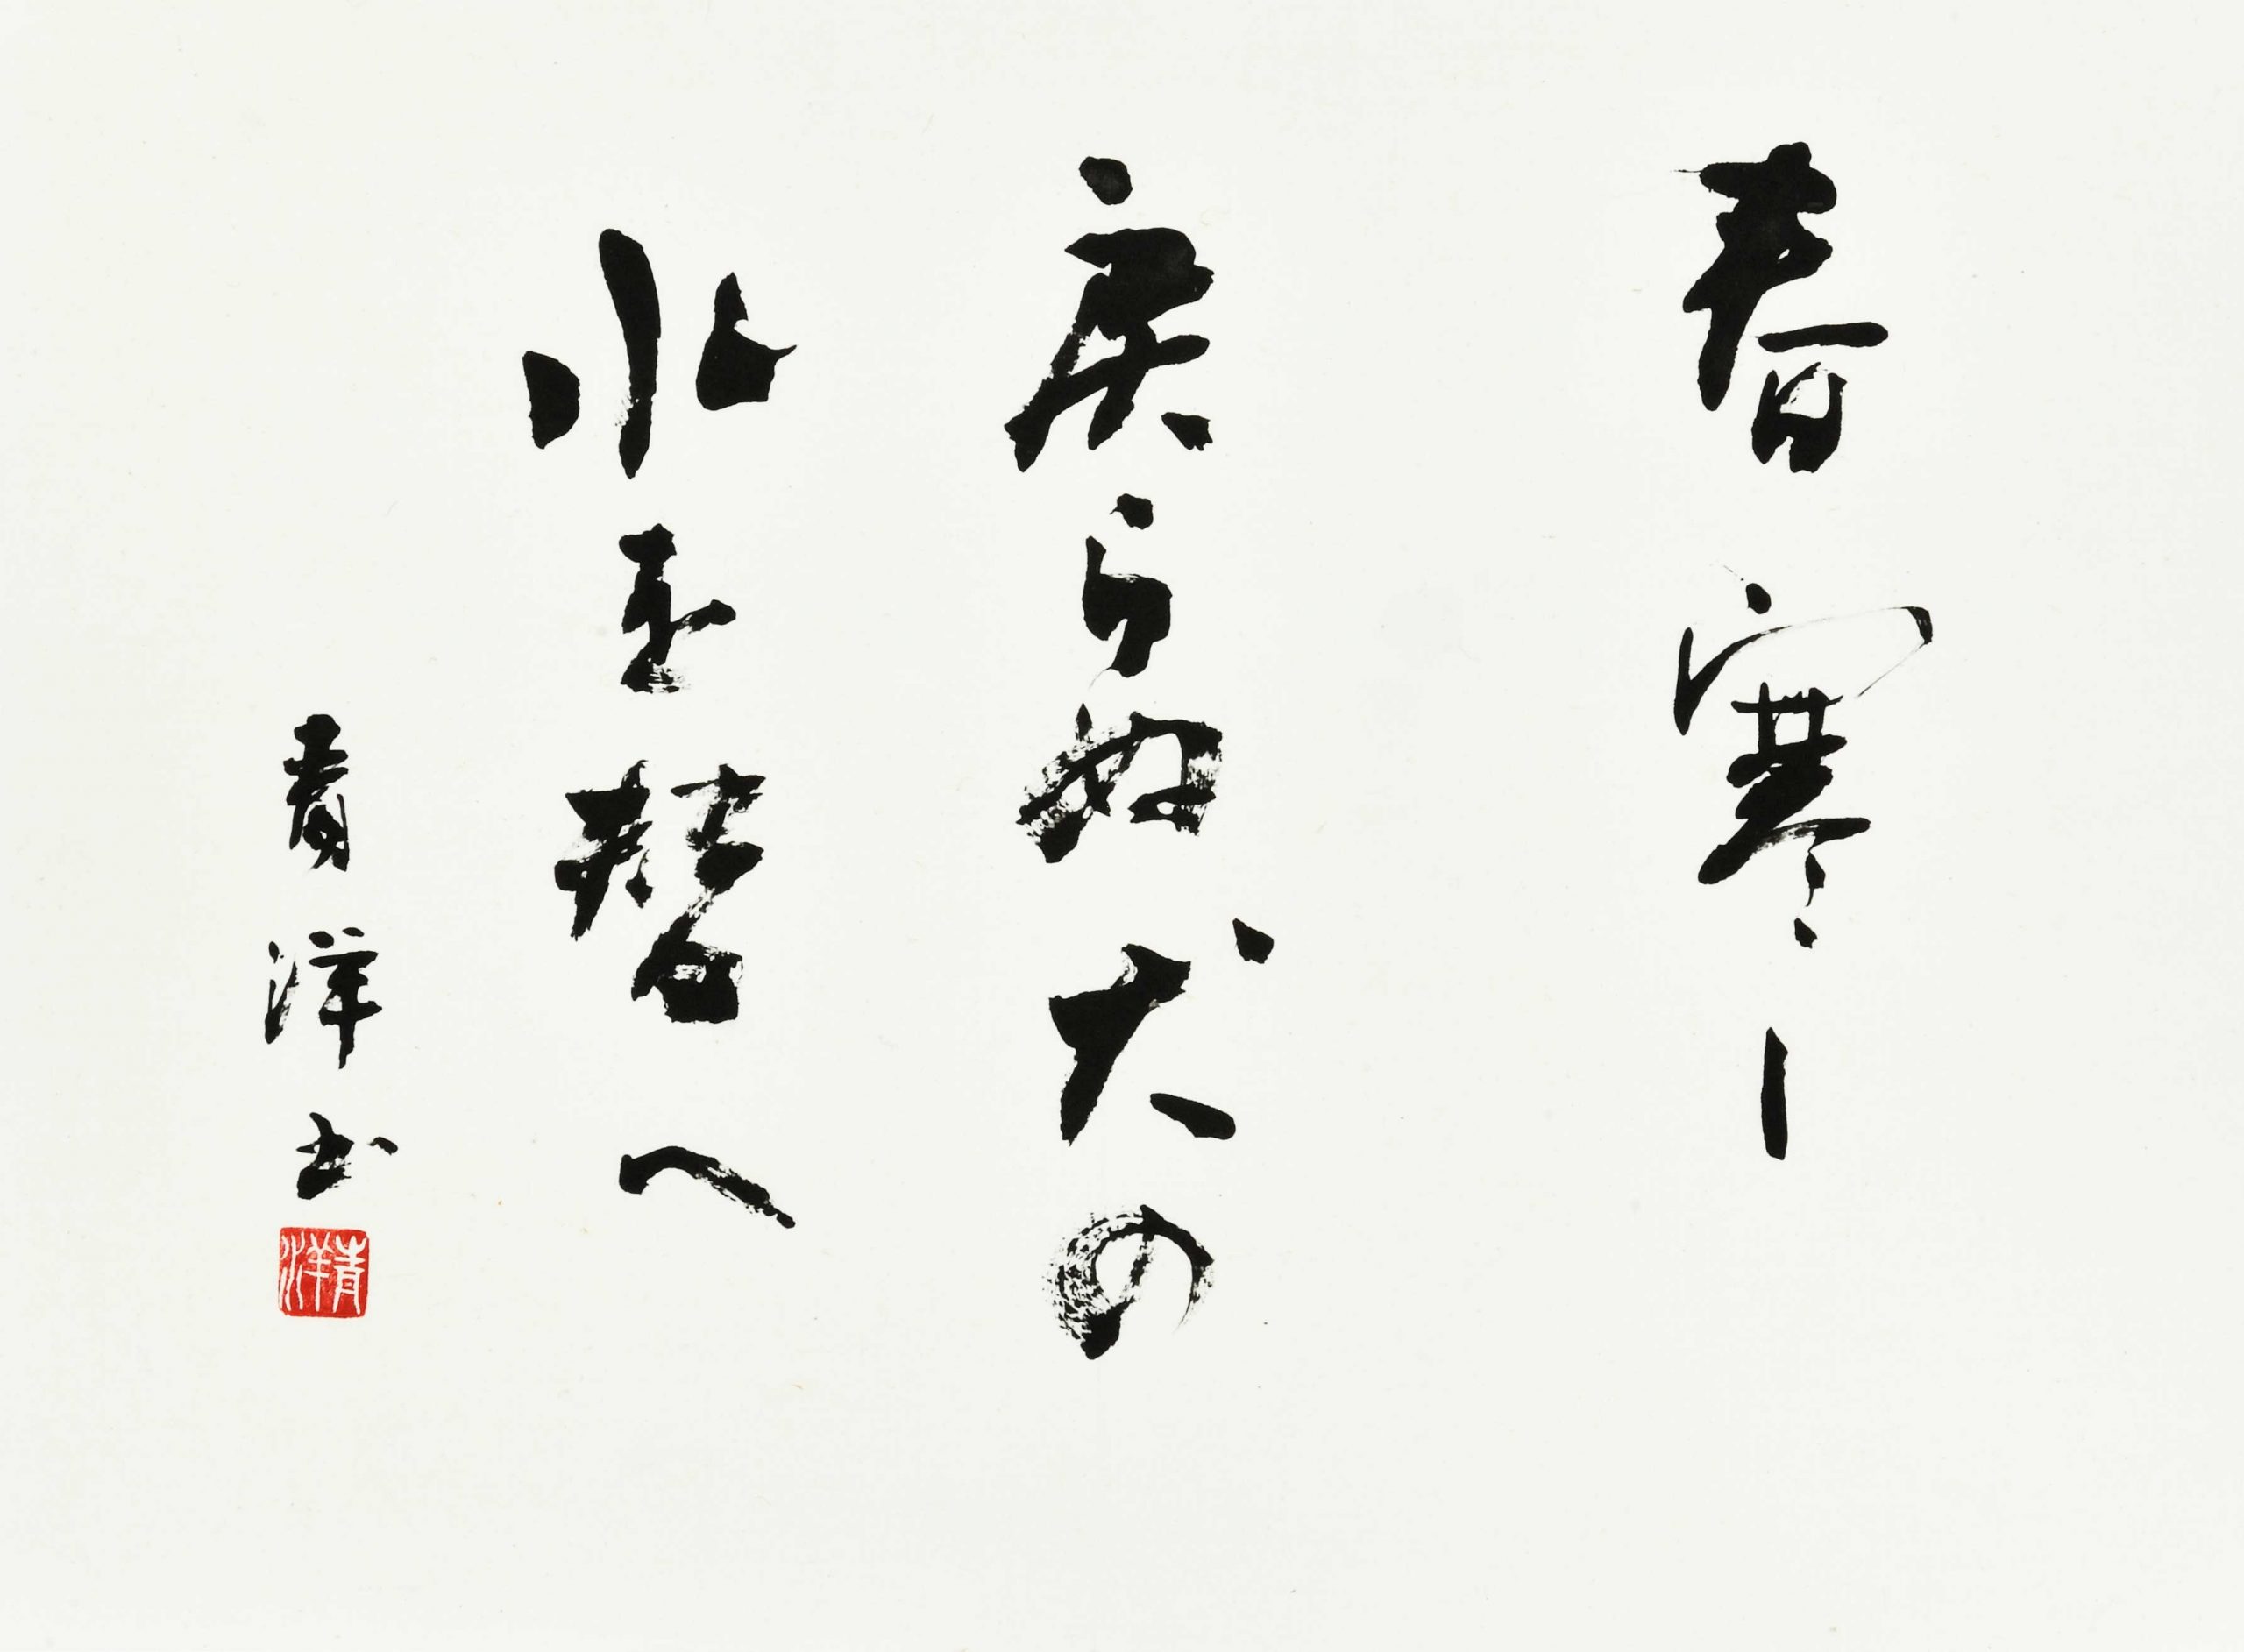 春寒し
戻らぬ犬の
水を替へ
青洋書
青洋